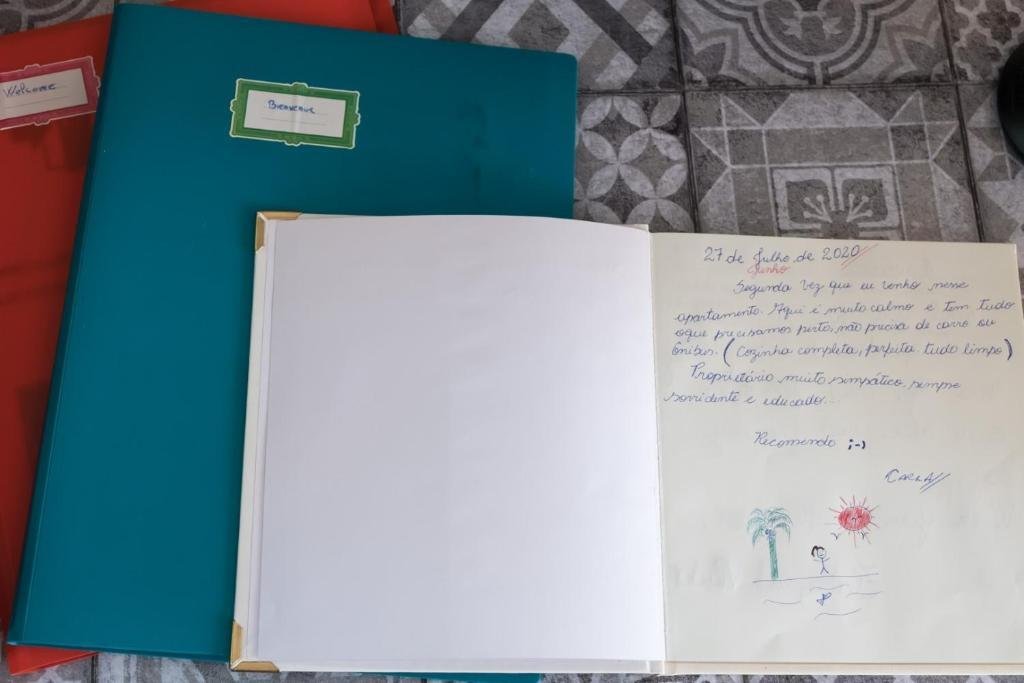 Welcome
Bienvenue
27 de Julho de 2020
Junho
Segunda vez que eu venho nesse
apartamento. Aqui é muito calmo e tem tudo
oque precisamos perto, não precisa de carro ou
ônibus. (Cozinha completa, perfeita. tudo limpo)
Proprietário muito simpático, sempre
sorridente e educado...
Recomendo ;-)
CARLA